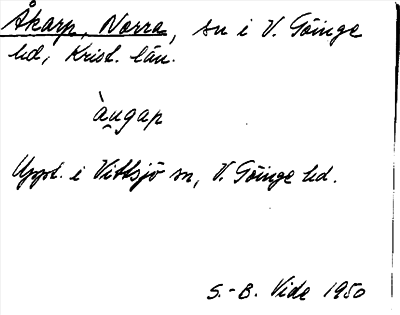 Åkarp, Norra, sn i V. Göinge
hd, Krist. län.
àu̯gap
Uppt. i Vittsjö sn, V. Göinge hd.
S.-B. Vide 1950